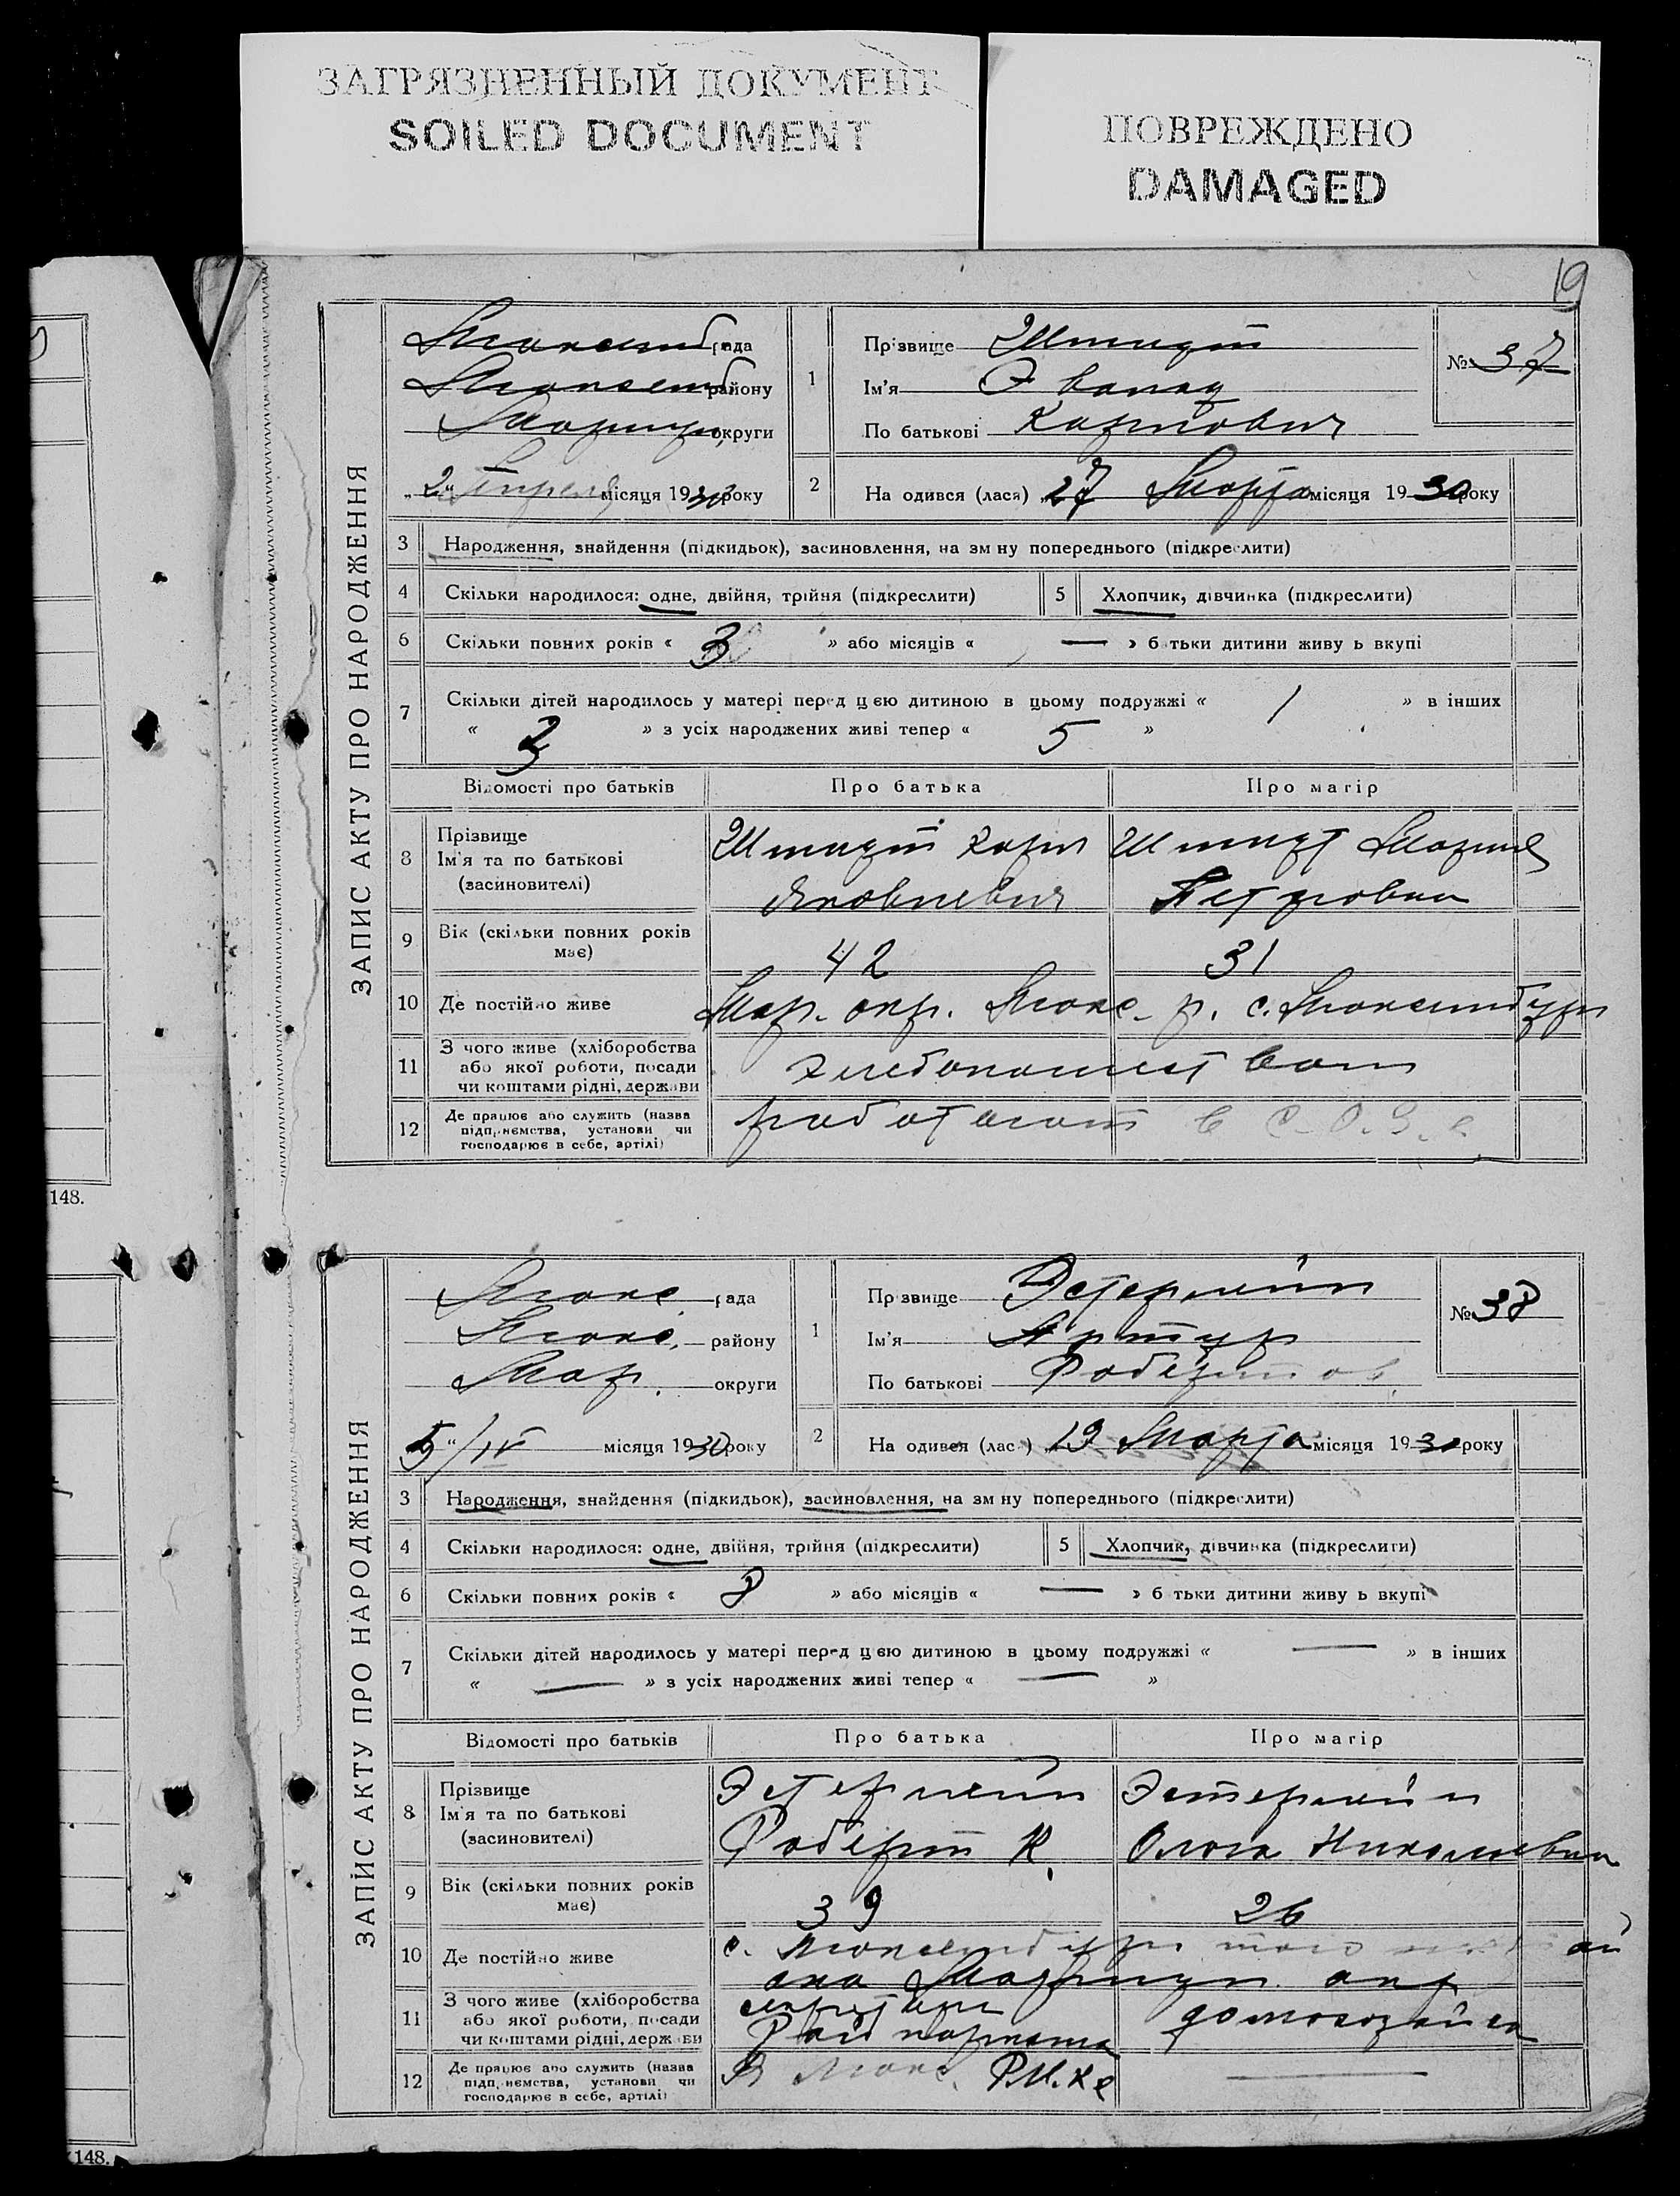 ЗАГРЯЗНЕННЫЙ ДОКУМЕНТ
SOILED DOCUMENT
ПОВРЕЖДЕНО
DAMAGED
19
148.
148.
ЗАПИС АКТУ ПРО НАРОДЖЕННЯ
рада
району
округи
„2" Апреля місяця 1930 року
1
Прізвище Шмидт
Ім'я Эвальд
По батькові Карлович
№ 37
2
На одився (лася) 27 Марта місяця 1930 року
3 Народження, знайдення (підкидьок), засиновлення, на зм ну попереднього (підкреслити)
4 Скільки народилося: одне, двійня, трійня (підкреслити) 5 Хлопчик, дівчинка (підкреслити)
6 Скільки повних років « 3 » або місяців « — » б тьки дитини живу ь вкупі
7 Скільки дітей народилось у матері перед цією дитиною в цьому подружжі « 1 » в інших
« » з усіх народжених живі тепер « 5 »
Відомості про батьків Про батька Про матір
8 Прізвище
Ім'я та по батькові
(засиновителі)
Шмидт Карл
Яковлевич
Шмидт Мария
Петровна
9 Вік (скільки повних років
має)
42 31
10 Де постійно живе Мар. окр. Люкс. р. с. Люксембург
11 З чого живе (хліборобства
або якої роботи, посади
чи коштами рідні, держави
хлебопашеством
12 Де працює або служить (назва
підприємства, установи чи
господарює в себе, артілі)
работают в С.О.З.е.
ЗАПИС АКТУ ПРО НАРОДЖЕННЯ
Люкс. рада
Люкс. району
Мар. округи
5"/IV місяця 1930 року
1
Пр звище Эстерлейн
Ім'я Артур
По батькові Робертов.
№ 38
2
На одився (лас ) 19 Марта місяця 1930 року
3 Народження, знайдення (підкидьок), засиновлення, на зм ну попереднього (підкреслити)
4 Скільки народилося: одне, двійня, трійня (підкреслити) 5 Хлопчик, дівчинка (підкреслити)
6 Скільки повних років « 8 » або місяців « — » б тьки дитини живу ь вкупі
7 Скільки дітей народилось у матері перед цією дитиною в цьому подружжі « — » в інших
« — » з усіх народжених живі тепер « — »
Відомості про батьків Про батька Про матір
8 Прізвище
Ім'я та по батькові
(засиновителі)
Эстерлейн
Роберт К.
Эстерлейн
Ольга Николаевна
9 Вік (скільки повних років
має)
39 26
10 Де постійно живе с. Люксембург того
Мариуп. окр
11 З чого живе (хліборобства
або якої роботи, посади
чи коштами рідні, держ ви
секретарь
Рай парткома
домохозяйка
12 Де працює або служить (назва
підприємства, установи чи
господарює в себе, артілі)
В Люкс. —